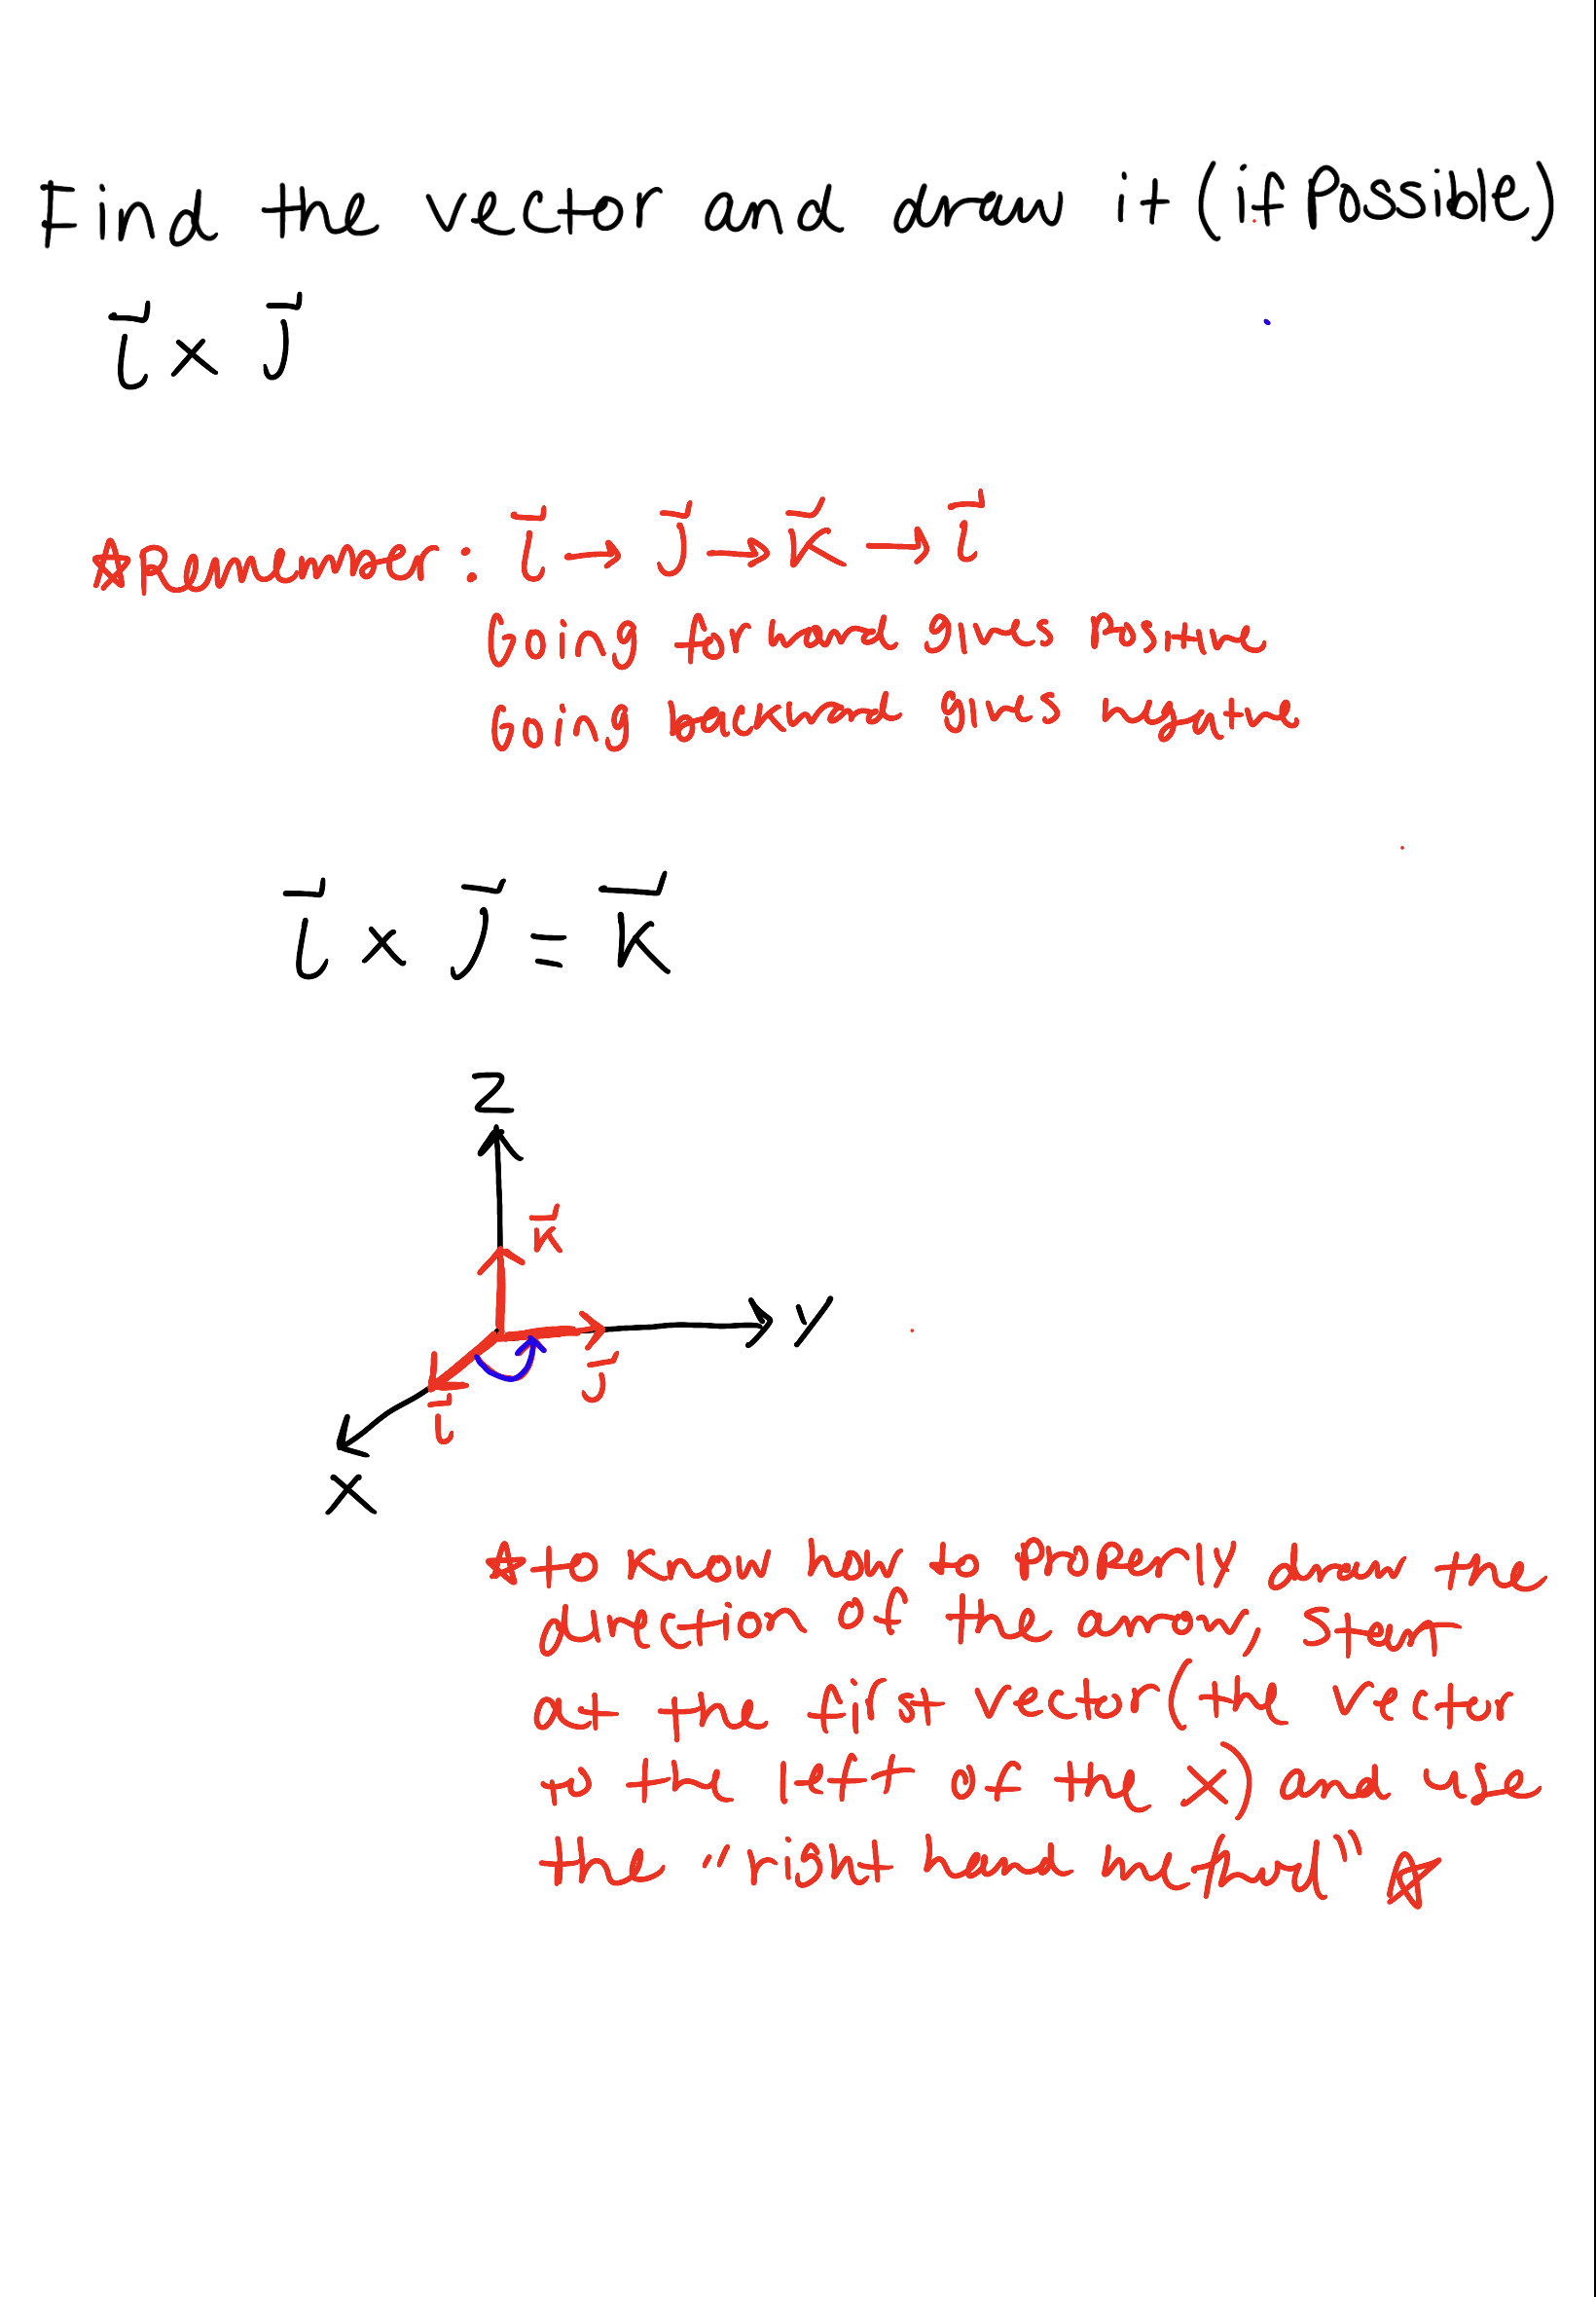 Find the vector and draw it (if Possible)
i⃗ x j⃗
☆Remember: i⃗ → j⃗ → k⃗ → i⃗
Going forward gives positive
Going backward gives negative
i⃗ x j⃗ = k⃗
Z
k⃗
y
j⃗
i⃗
X
☆to know how to properly draw the
direction of the arrow, start
at the first vector (the vector
to the left of the x) and use
the "right hand method" ☆